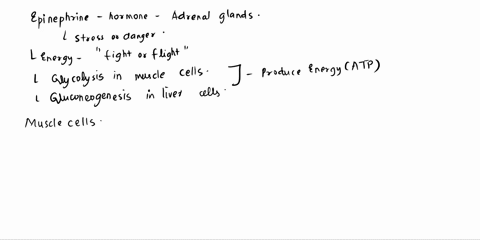 Epinephrine - hormone - Adrenal glands.
↳ stress or danger.
↳ Energy - "fight or flight"
↳ Glycolysis in muscle cells. ] - Produce Energy (ATP)
↳ Gluconeogenesis in liver cells.
Muscle cells.